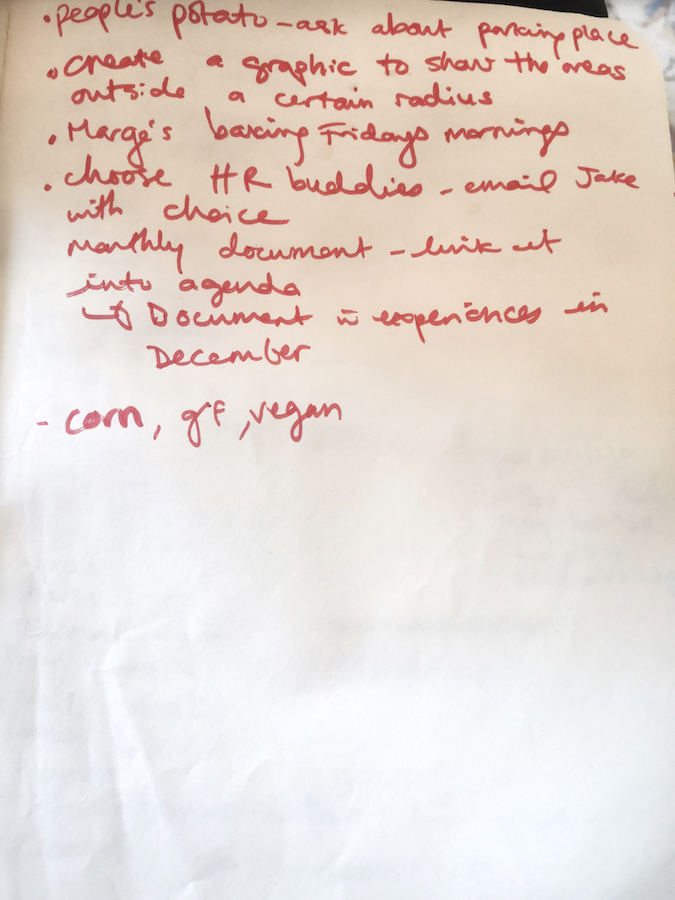 • people's potato - ask about parking place
• create a graphic to show the areas
outside a certain radius
• Marge's baking Fridays mornings
• choose HR buddies - email Jake
with choice
monthly document - link it
into agenda
↳ Document experiences in
December
- corn, gf, vegan